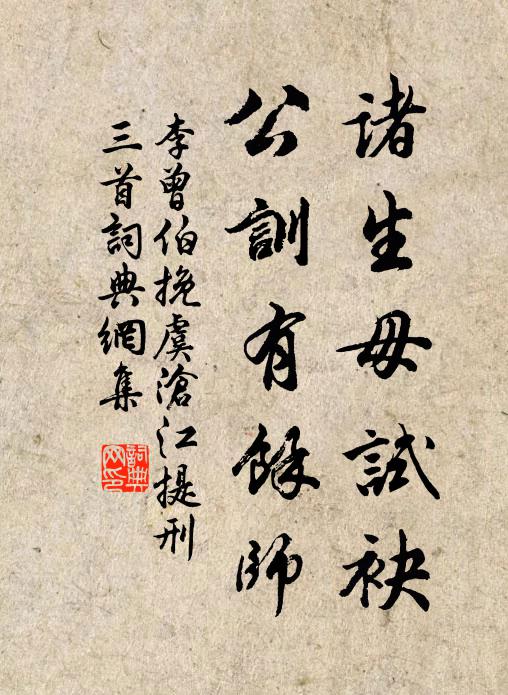 諸生毋試袂
公訓有餘師
李曾伯挽虞滄江提刑
三首詞典網集
詞典网印